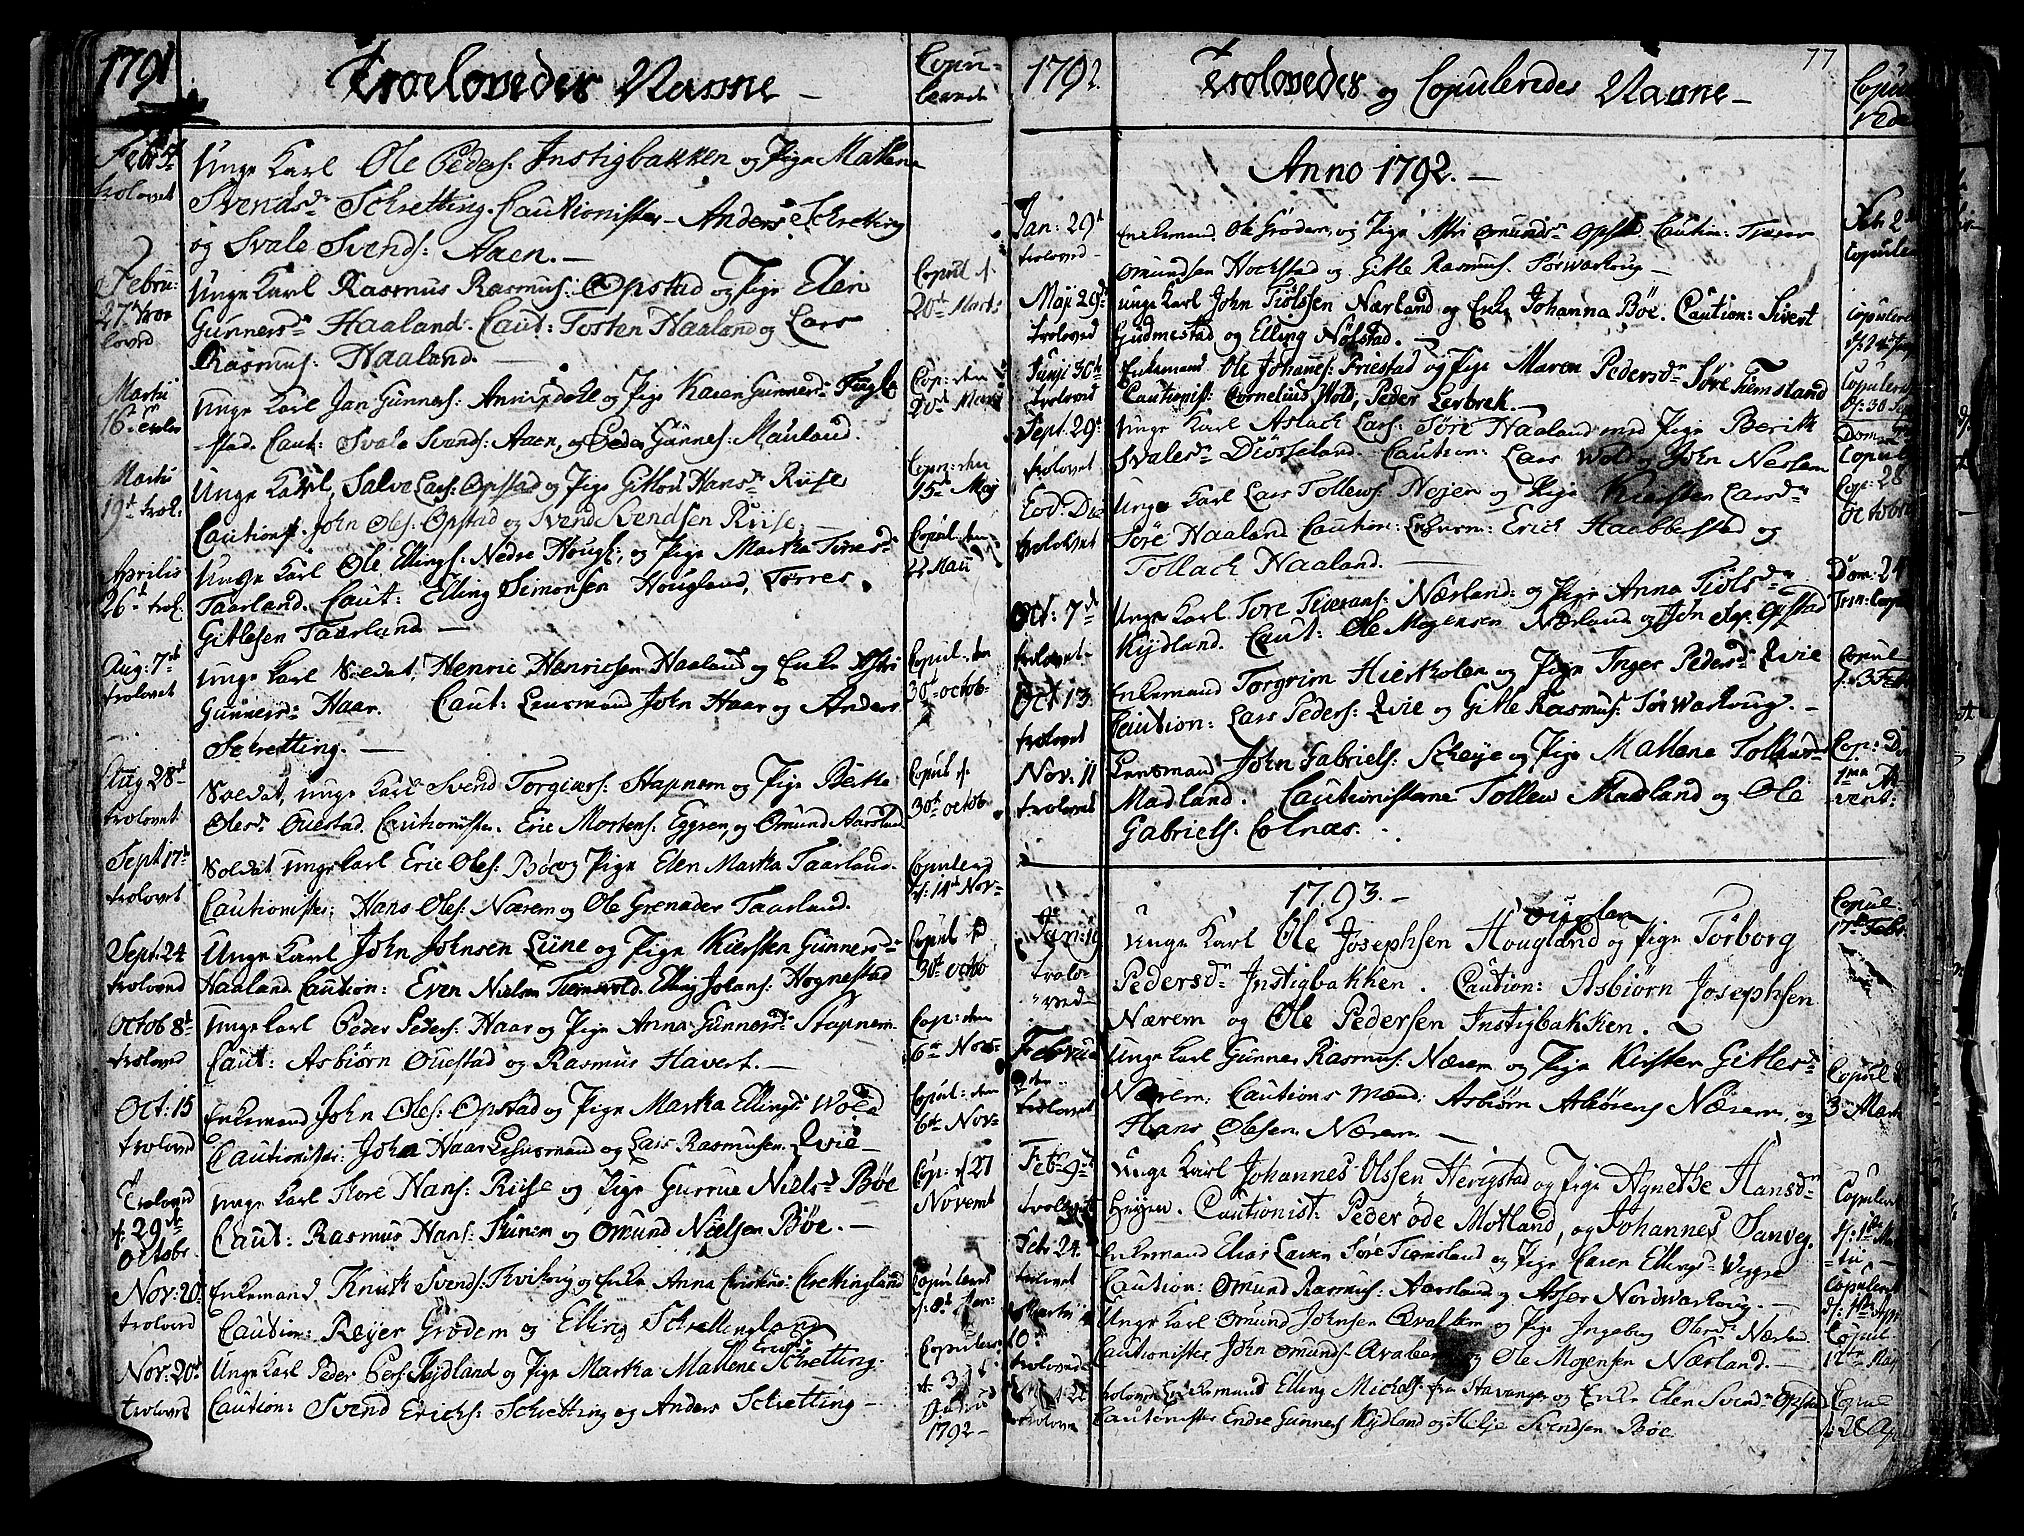 1791
Troelovedes Navne —
Copu-
lerede
Febr 5t
trolovet
Unge Karl Ole Peders: Instigbakken og Pige Mallene
Svendsdr Schretting. Cautionister - Anders Schretting
og Svale Svends: Aaen. —
Febru:
27t tro
loved
Unge Karl Rasmus Rasmus: Opstad og Pige Elen
Gunnersdr Haaland. Caut: Tosten Haaland og Lars
Rasmus: Haaland. —
Copul d.
20de Marts
Martii
16
Unge Karl Jan Gunners: Annisdahl og Pige Karen Gunnersdr Fugle
-stad. Caut: Svale Svends: Aaen, og Peder Gunners: Mauland.
Cop: den
20de
Martii
19t trol:
Unge Karl, Salve Lars: Opstad og Pige Gitlou Hansdr Riise
Cautionist. John Oles: Opstad og Svend Svendsen Riise. —
Cop: den
15de Maj
Aprilis
26t trol:
Unge Karl Ole Ellings: Nedre Hough:, og Pige Marta Torresdr
Taarland. Caut: Elling Simonsen Hougland, Torres
Gitlesen Taarland —
Copul. den
Maii
Aug: 7de
trolovet
Unge Karl Soldat, Henric Henricsen Haaland og Enke Astri
Gunnersdr Haar. Caut: Lensmand John Haar og Anders
Schretting. —
Copul. den
30t octob-
Aug 28t
trolovet
Soldat, unge Karl Svend Torgiers: Stapnem og Pige Berte
Olesdr Ouestad. Cautionister. Eric Mortens: Eggren, og Omund Aarsland.
Copul d.
30t octob
Sept 17de
trolovet
Soldat unge Karl Eric Oles: Bøe og Pige Elen Marta Taarland-
Cautionister; Hans Oles: Nærem og Ole Grenader Taarland.
Copulered
d: 14de Nov-
Sept: 24
troloved
Unge Karl John Johnsen Liine og Pige Kiersten Gunnersdr
Haaland. Caution: Even Nielsen Tiemsvold. Elling Johans: Hognestad
Copul d
30t octo
Octob 8t
trolovd
Unge Karl Peder Peders: Haar og Pige Anna Gunnersdr Stapnem-
Caut: Asbiørn Ouestad og Rasmus Havert. —
Cop: den
6te Nov-
Oct: 15
trolovd
Enkemand John Oles: Opstad og Pige Marta Ellingsdr Wold
Cautionister: John Haar Lensmand og Lars Rasmusen Qvie —
Copul: den
6te Nov-
Trolovd
d. 29de
Octobr.
Unge Karl Tore Hans: Riise og Pige Gurrue Nielsdr Bøe
Caut: Rasmus Hans: Tunem og Omund Nielsen Bøe. —
Cop: d 27
Novemt
Nov: 20
trolovd
Enkemand Knut Svends: Tvihoug og Enke Anna Schrettingland
Caution: Reyer Grødem og Elling Schrettingland
Copuleret
d: 8de Jan:
Nov: 20t
trolovet
Unge Karl Peder Pers: Kydland og Pige Marta Mallene Ericsdr Schretting.
Caution: Svend Erichs: Schretting og Anders Schretting —
Copuleret
d. 3
1792 —
1792.
Trolovedes og Copuleredes Navne —
77
Copu
rede
Anno 1792. —
Jan: 29t
trolovd —
Enkemand. Ole Grødem, og Pige Astri Omundsdr Opstad. Caution: Tiøran
Omundsen Hockstad og Gitle Rasmus. Sørwarhoug —
Febr 2de
Copuler
Maji 29de
trolovd
Unge Karl John Tiølssen Nærland og Enke Johanna Bøe. Caution: Sivert
Gudmestad og Elling Nølstad. —
Copulere
Junji 30te
trolovd
Enkemand. Ole Johanes: Friestad og Pige Maren Pedersdr Søre Tiemsland
Cautionist: Cornelius Wold, Peder Lerbrek. —
Copulered
d: 30 Sep
Sept. 29t
trolovet
Unge Karl Aslach Lars: Søre Haaland med Pige Berith
Svalesdr Diøsseland. Caution: Lars Wold og John Neslem
Copul
Eod: Die
trolovet
Unge Karl Lars Tollews: Nojen og Pige Kiersten Larsdr
Søre Haaland Caution: Lehnsm: Erich Haabbestad og
Tollach Haaland. —
Cop: 28
October
Oct. 7de
trolovet
Unge Karl Tore Tiørans: Nærland: og Pige Anna Tiølsdr
Kydland. Caut: Ole Mogensen Nærland og John Opstad
Dom: 24
Trin: Copul
Oct 13
trolovet
Enkemand Torgrim Hierkolen og Pige Inger Pedersdr Qvie
Caution: Lars Peders: Qvie og Gitle Rasmus: Sør Warhoug. —
Copul
d. 3 Feb
Nov: 11
trolovet
Lensmand John Gabriels: Scheje og Pige Mallene Tollews
Madland. Cautionisterne Tollew Madland og Ole
Gabriels: Colnæs.
Cop: Do
1ma
vent:
1793. —
Jan: 19
trolo
ved
Unge Karl Ole Josephsen Hougland og Pige Torborg
Pedersdr Instigbakken. Caution: Asbiørn Josephsen
Nærem og Ole Pedersen Instigbakken. —
Copul.
17de Febr.
Februa
trolovet
Unge Karl Gunner Rasmus: Nærem og Pige Kirsten Gitlesdr
Nærem: Cautions Mænd: Asbiørn Asbiørens Nærem, og
Hans Olesen Nærem —
Copul d
3 Marti
Febr 9de
trolovet
Unge Karl Johannes Olssen Herigstad og Pige Agnethe Hansdr
Cautionist: Peder Øde Motland, og Johannes Sanvej.
Copuleret
Febr. 24.
trolovet
Enkemand Elias Larsen Søre Tiemsland og Pige Caren Ellingsdr Wiggre
Caution: Omund Rasmus: Aarsland og Asser Nordwarhoug. —
Copuleret
Martii
10
trolovd
Unge Karl Omund Johnsen Qvalbein og Pige Ingeborg Olesdr Nærland
Cautionister John Omunds. og Ole Mogensen Nærland. —
Copul
12te Maj
trolovd
trolovet Enkemand Elling Michels: fra Stavanger og Enke Elen Svendsdr Opstad
Cautionister Endre Gunners Kydland og Helje Svendsen Bøe
Copul
d: 28 Ap